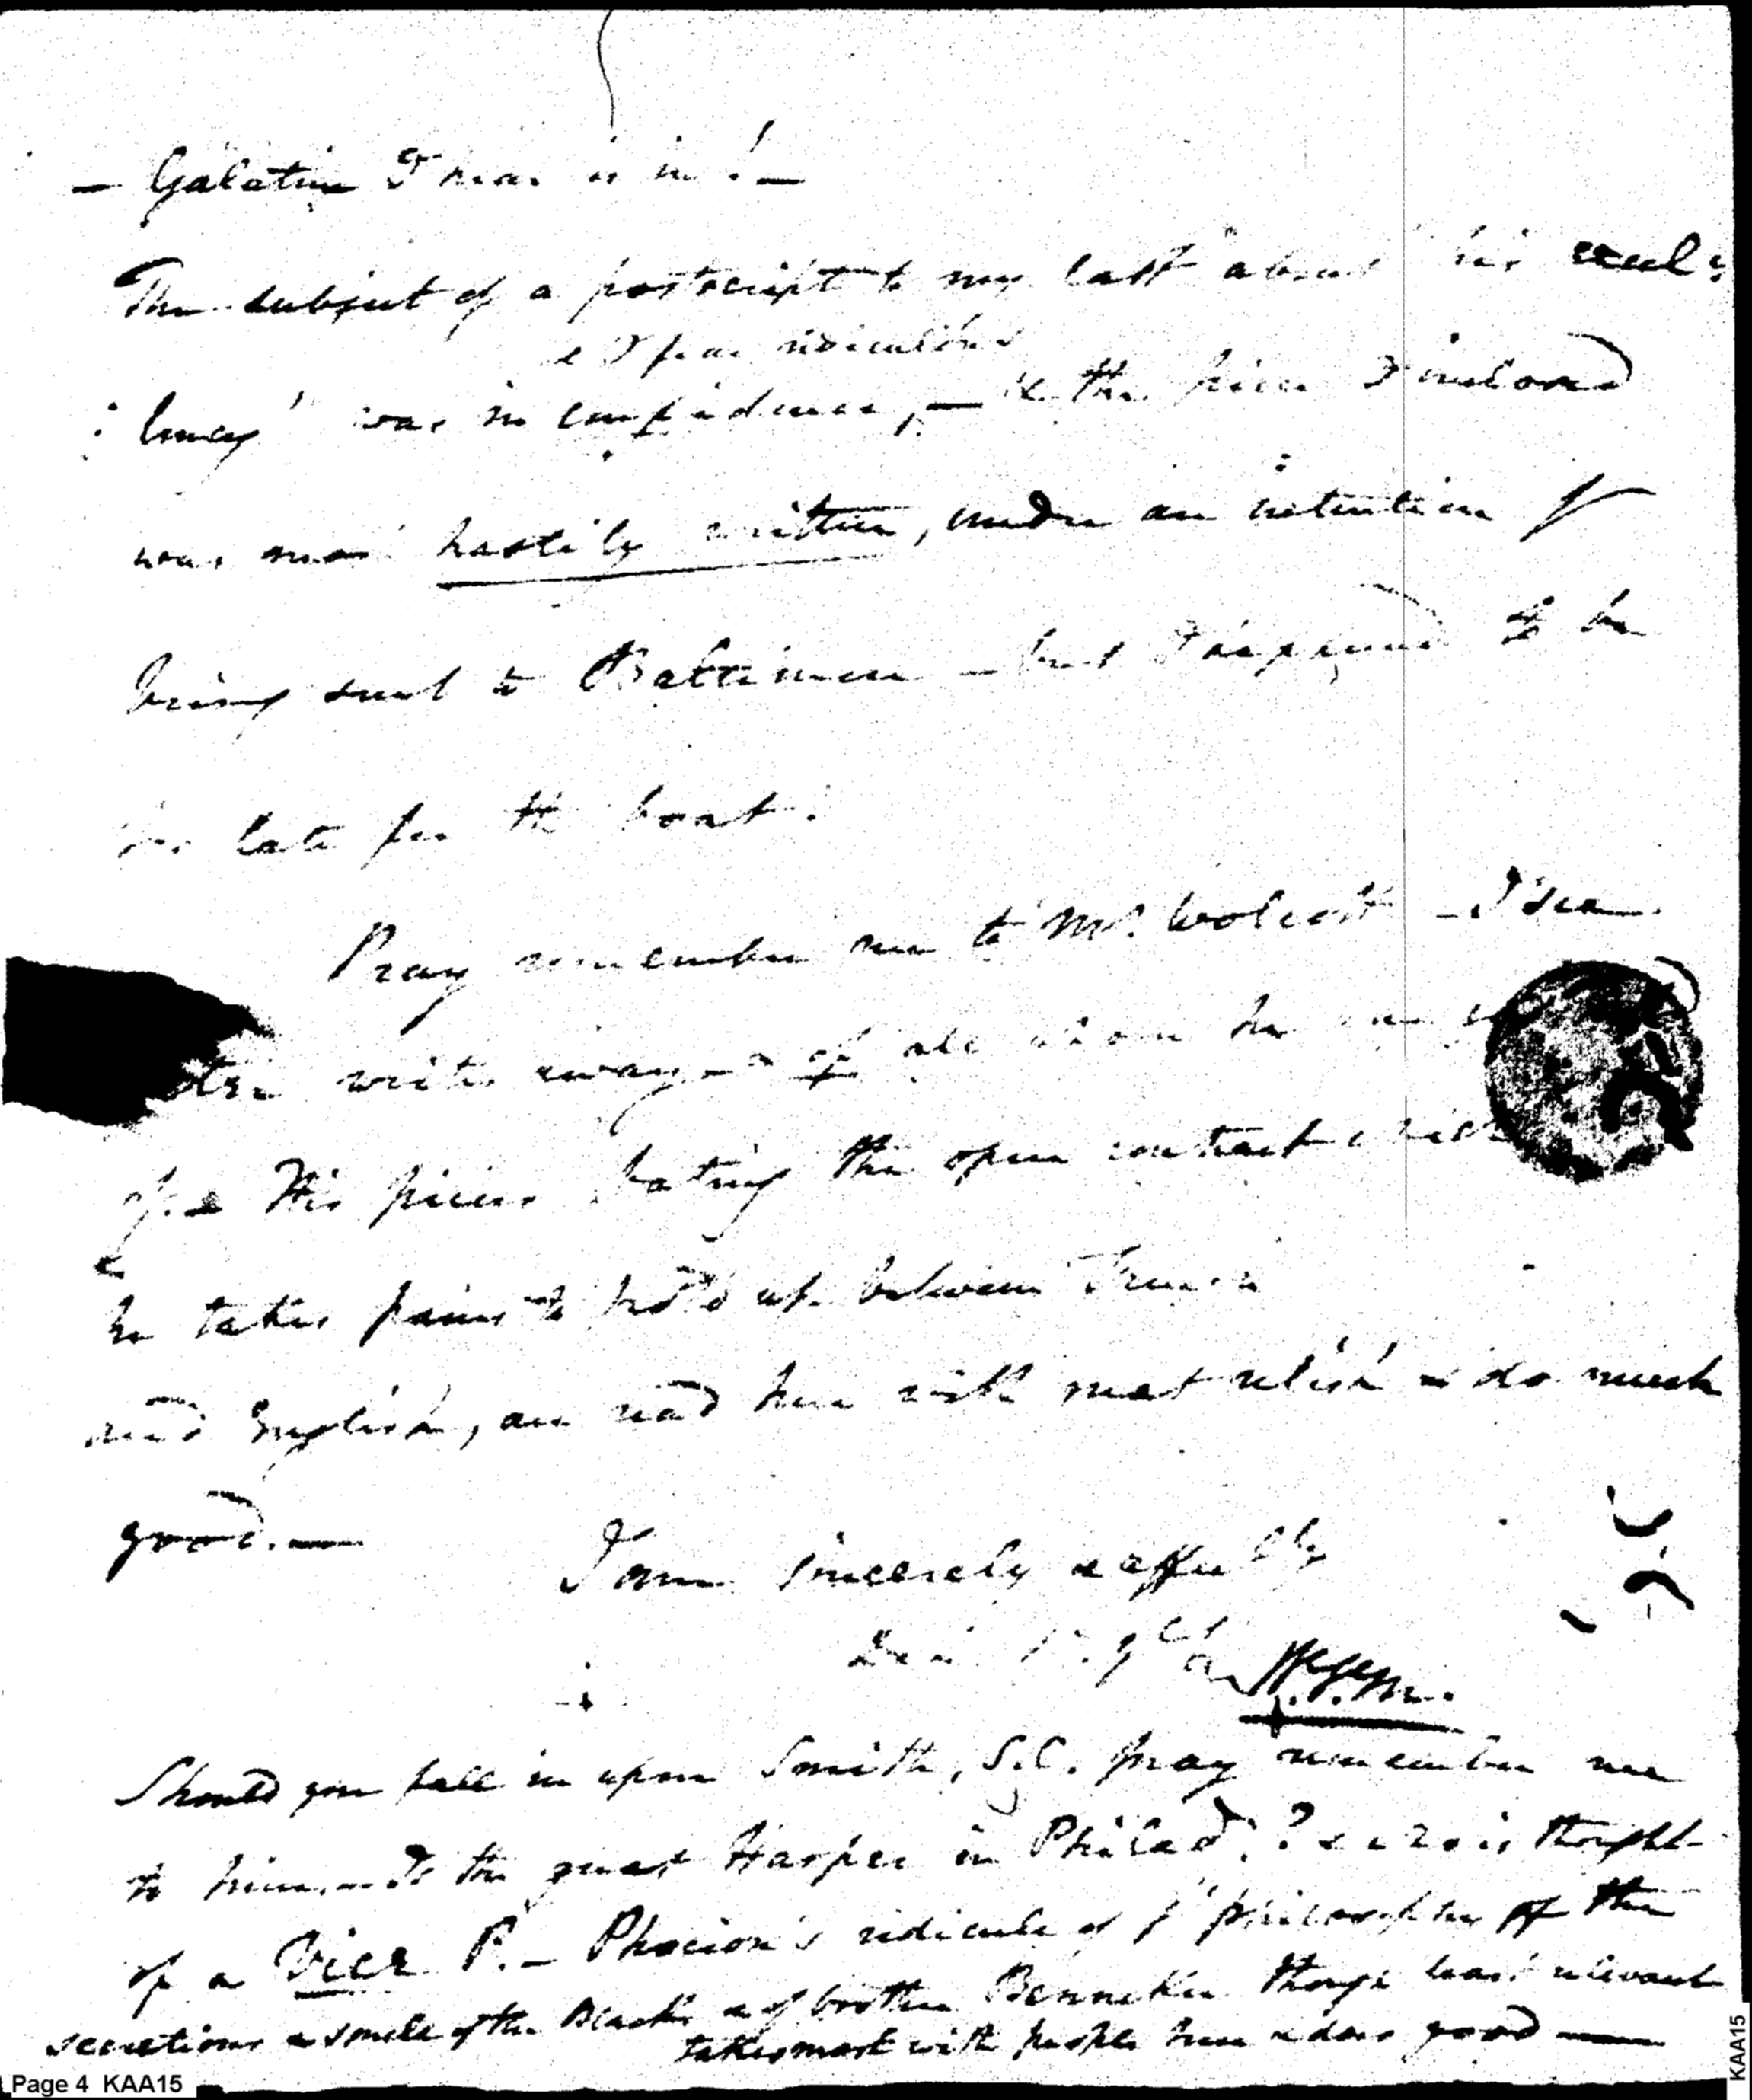 — Galatin I hear is in! —
The subject of a postscript to my last about his excel:
& I fear ridiculous
: lency' was in confidence, — & the piece I inclosed
was most hastily written, under an intention of
being sent to Baltimore — but I happened to be
too late for the boat.
Pray remember me to Mr. Wolcott — I see
writes away — of all whom he
of. & His pieces stating the open contrast which
he takes pains to hold up between French
and English, are read here with most relish & do much
good. —
I am sincerely & affectly
W.V.M.
Should you fall in upon Smith, S.C. pray remember me
to him. — Is the great Harper in Philad.? & is thought
of a Vice P. — Phocion's ridicule of ye philosopher of the
secretions & smell of the Blacks & of brother Benneker though least relevant
takes most with people here & does good —
Page 4 KAA15
KAA15